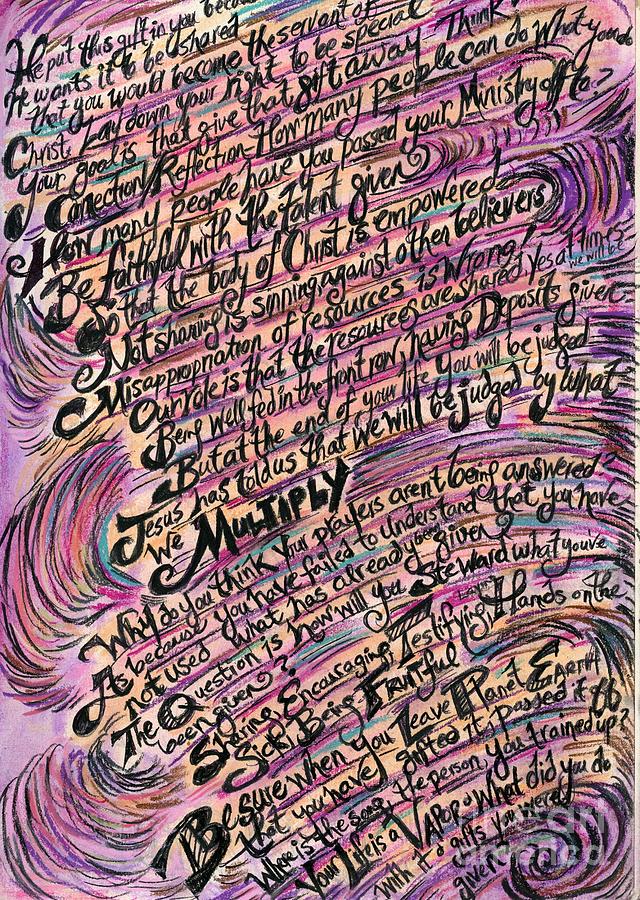 He put this gift in you because
He wants it to be shared
that you would become the servant of
Christ Lay down your right to be special
Your goal is that give that gift away Think?
Connection/Reflection How many people can do What you do
How many people have you passed your Ministry off to?
Be faithful with the talent given
So that the body of Christ is empowered
Not sharing is sinning against other believers
Misappropriation of resources is Wrong!
Our role is that the resources are shared, Yes at times we will be
Being well fed in the front row, having Deposits given
But at the end of your life you will be judged
Jesus has told us that we will be judged by what
We MULTIPLY
Why do you think your prayers aren't being answered?
Is because you have failed to understand that you have
not used what has already been given?
The Question is how will you Steward what you've
been given?
Sharing Encouraging Testifying, Laying Hands on the
Sick, Being FRUITFUL
Be sure when you Leave Planet EARTH
that you have passed it off
Where is the the person you trained up?
Your Life is a VAPOR What did you do
with it & gifts you were
given